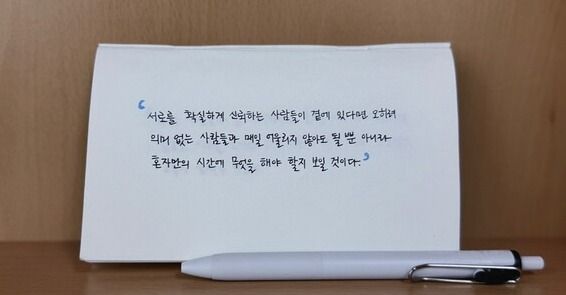 “서로를 확실하게 신뢰하는 사람들이 곁에 있다면 오히려
의미 없는 사람들과 매일 어울리지 않아도 될 뿐 아니라
혼자만의 시간에 무엇을 해야 할지 보일 것이다.”